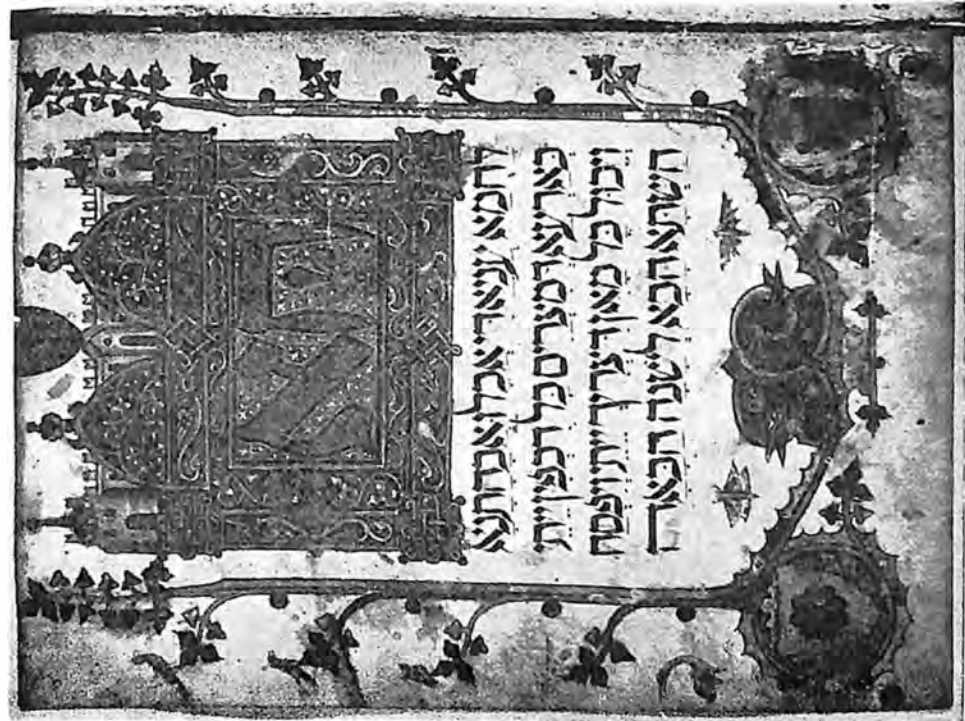 הא
לחמא עניא די אכלו אבהתנא
בארעא דמצרים כל דכפין ייתי
ויכול כל דצריך ייתי ויפסח
השתא הכא לשנה הבאה